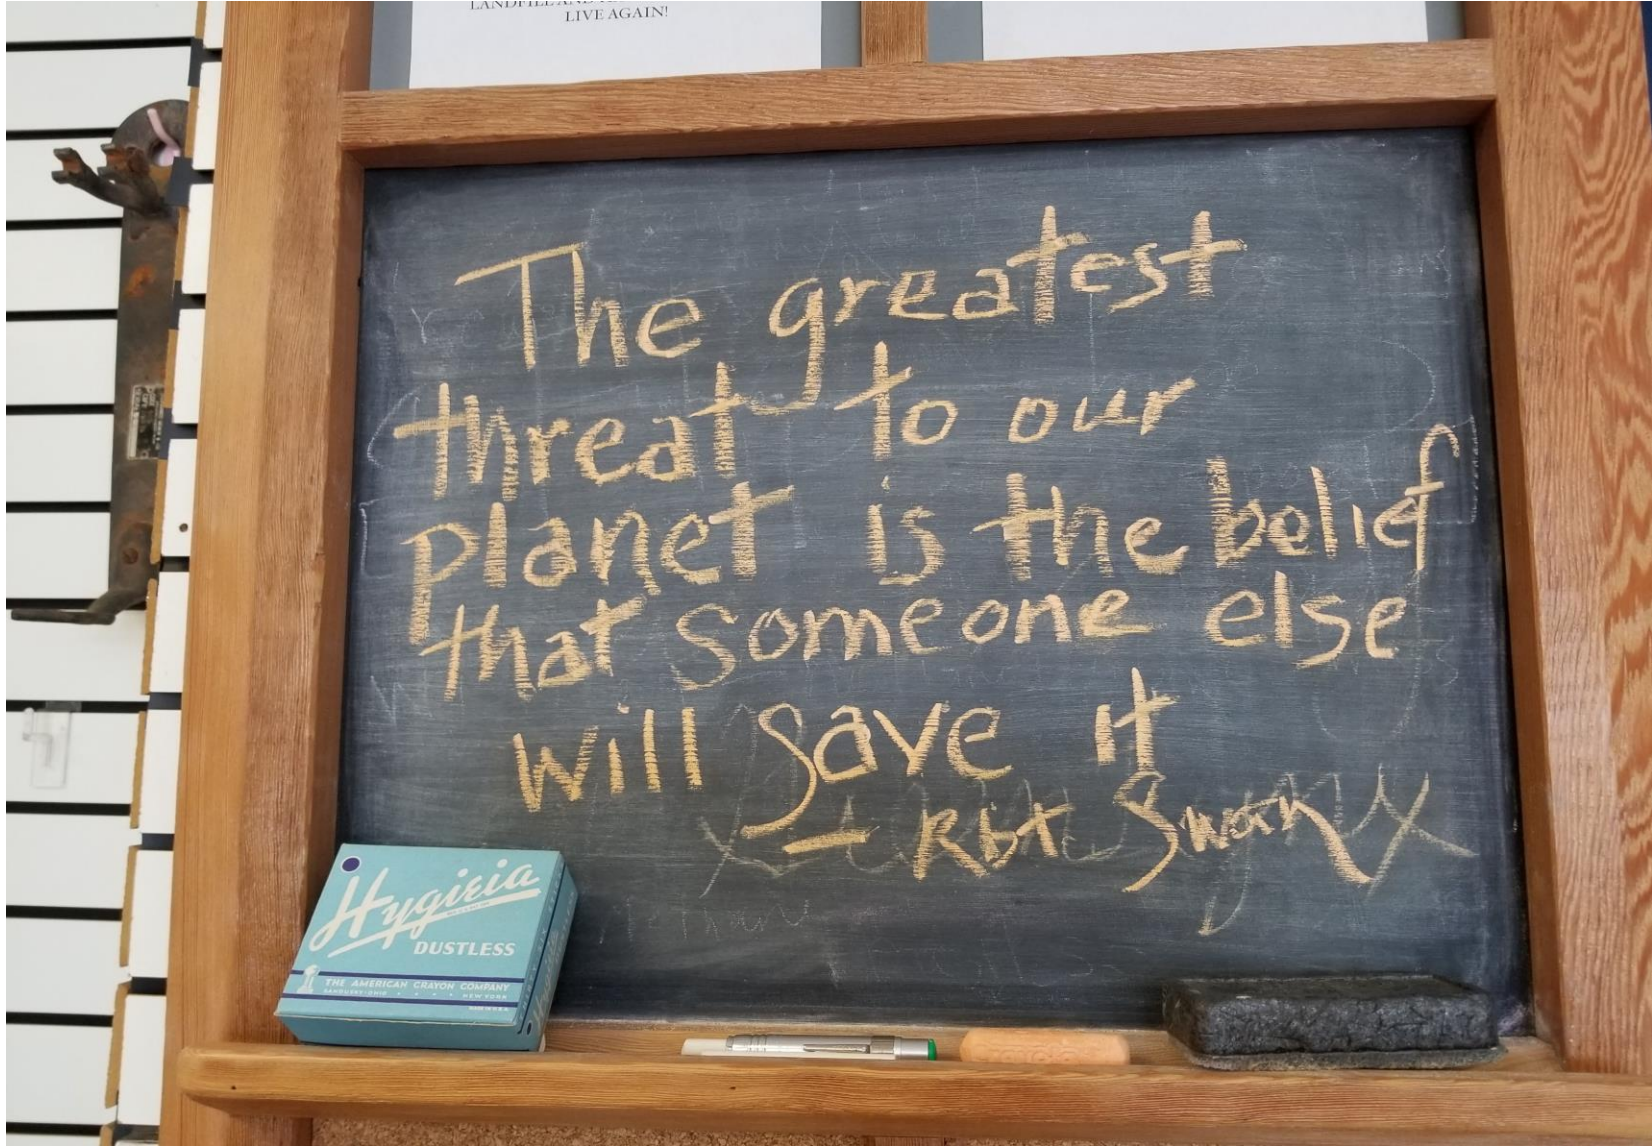 LANDFILL AND
LIVE AGAIN!
The greatest
threat to our
planet is the belief
that someone else
will save it
— Rbt Swan
Hygieia
DUSTLESS
THE AMERICAN CRAYON COMPANY
SANDUSKY-OHIO NEW YORK